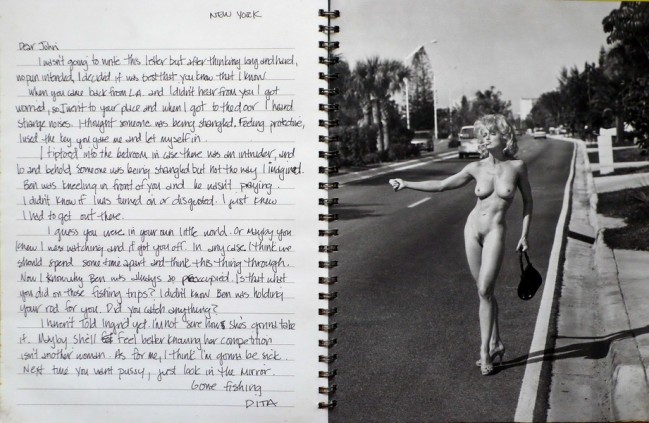 NEW YORK
Dear John,
I wasn't going to write this letter but after thinking long and hard,
no pun intended, I decided it was best that you know that I know.
When you came back from L.A. and I didn't hear from you I got
worried, so I went to your place and when I got to the door I heard
strange noises. I thought someone was being strangled. Feeling protective,
I used the key you gave me and let myself in.
I tiptoed into the bedroom in case there was an intruder, and
lo and behold someone was being strangled but not the way I imagined.
Ben was kneeling in front of you and he wasn't praying.
I didn't know if I was turned on or disgusted. I just knew
I had to get out there.
I guess you were in your own little world. Or maybe you
knew I was watching and it got you off. In any case I think we
should spend some time apart and think this thing through.
Now I know why Ben was always so preoccupied. Is that what
you did on those fishing trips? I didn't know Ben was holding
your rod for you. Did you catch anything?
I haven't told Ingrid yet. I'm not sure how she's gonna take
it. Maybe she'll feel better knowing her competition
isn't another woman. As for me, I think I'm gonna be sick.
Next time you want pussy, just look in the mirror.
Gone fishing
DITA